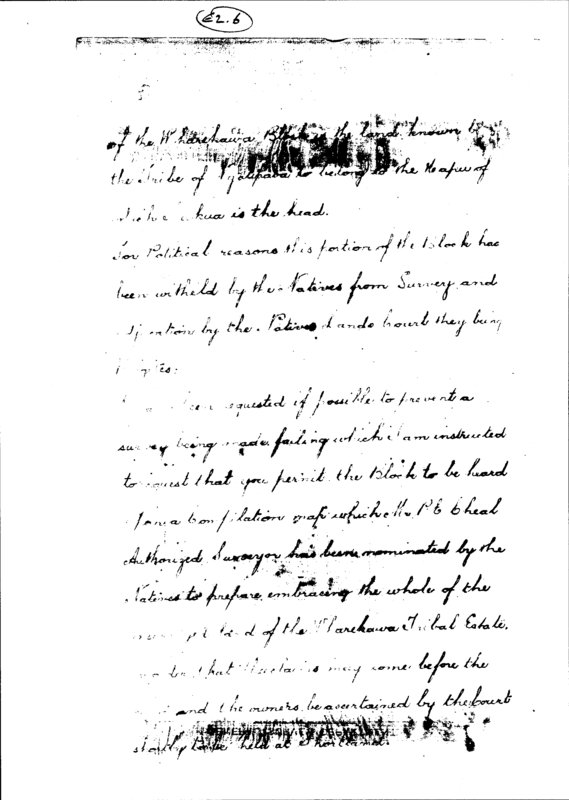 E2.6
of the Wharekawa Block is the land known by
the Tribe of to belong to the Hapu of
is the head.
For Political reasons this portion of the Block has
been witheld by the Natives from Survey and
by the Native Lands Court they being
requested if possible to prevent a
survey being made failing which I am instructed
to request that you permit the Block to be heard
on a Compilation map which Mr. P E Cheal
Authorized Surveyor has been nominated by the
Natives to prepare embracing the whole of the
of the Wharekawa Tribal Estate.
that may come before the
and the owners be ascertained by the Court
shortly to be held at Shortland.